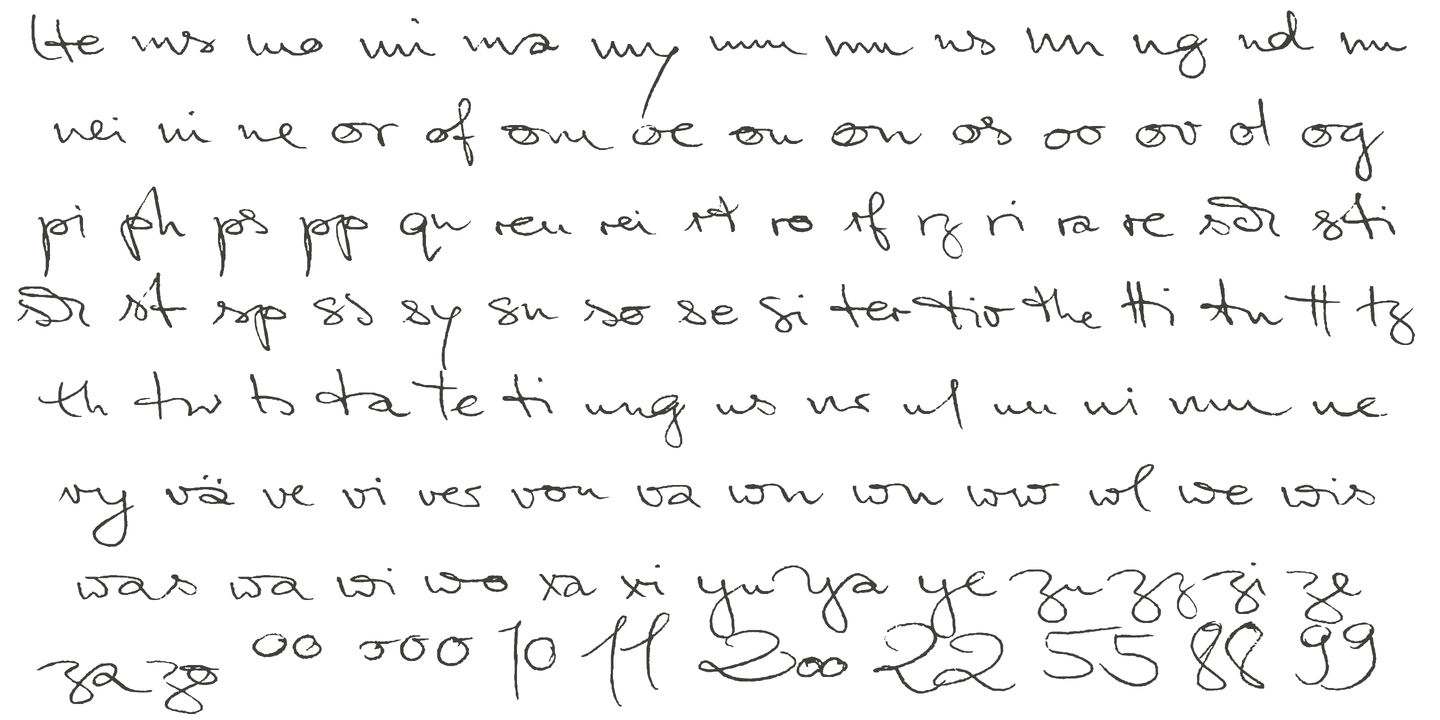 He ms mo mi ma my mm mu ns nn ng nd nu
nei ni ne or of om oe ou on os oo ov ol og
pi ph ps pp qu reu rei rt ro rf rz ri ra re sti
st sp ss sy su so se si ter tio the tti tu tt tz
th tw ts ta te ti ung us ur ul uu ui um ue
vy vä ve vi ver von va wn wn ww wl we wis
was wa wi wo xa xi yu ya ye zu zz zi ze
za zo 00 000 10 11 200 22 55 88 99